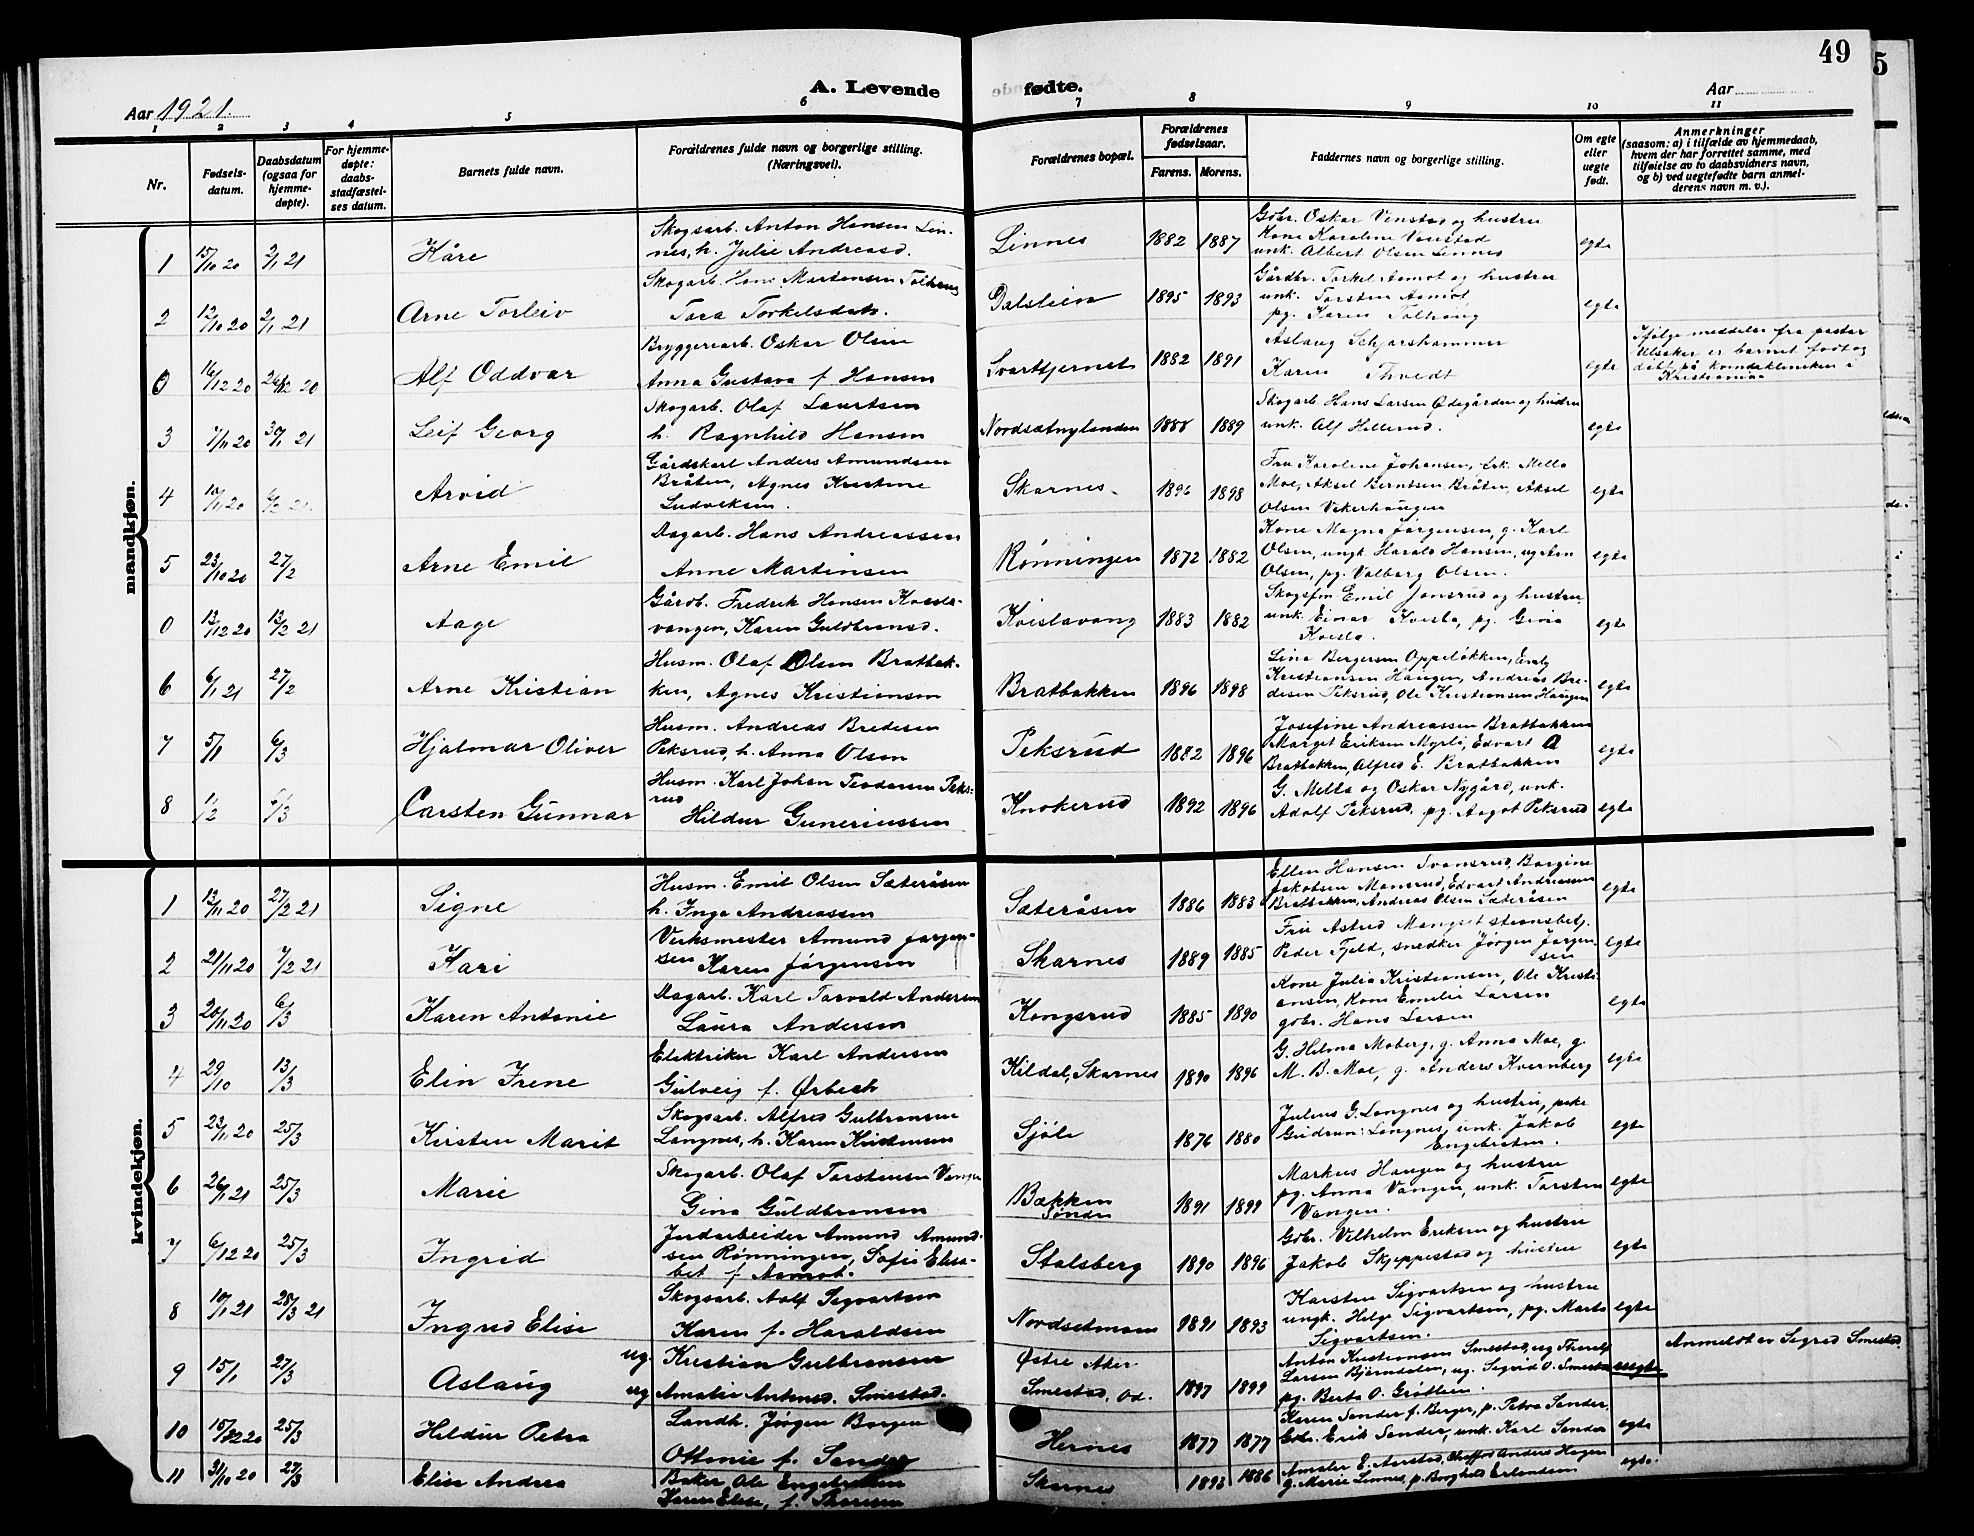 49
5
A. Levende fødte.
Aar 1921.
Aar
1 2 3 4 5 6 7 8 9 10 11
Nr.
Fødsels-
datum.
Daabsdatum
(ogsaa for
hjemme-
døpte).
For hjemme-
døpte:
daabs-
stadfæstel-
ses datum.
Barnets fulde navn.
Forældrenes fulde navn og borgerlige stilling.
(Næringsvei).
Forældrenes bopæl.
Forældrenes
fødselsaar.
Farens. Morens.
Faddernes navn og borgerlige stilling.
Om egte
eller
uegte
født.
Anmerkninger
(saasom: a) i tilfælde av hjemmedaab,
hvem der har forrettet samme, med
tilføielse av to daabsvidners navn,
og b) ved uegtefødte barn anmel-
derens navn m. v.).
mandkjøn.
1 15/10 20 2/1 21 Kåre
Skogsarb. Anton Hansen Lin-
nes, h. Julie Andreasd.
Linnes 1882 1887
Gbr. Oskar Venstad og hustru
Kone Karoline Venstad
unk. Albert Olsen Linnes
egte
2 12/10 20 2/1 21 Arne Torleiv
Skogarb. Hans Martensen
Tora Torkelsdatr.
Dalslien 1895 1893
Gårdbr. Torkel Aamot og hustru
unk. Torsten Aamot
pg. Karen
egte
0 16/12 20 26/12 20 Alf Oddvar
Bryggeriarb. Oskar Olsen
Anna Gustava f. Hansen
Svarttjernet 1882 1891
Aslaug
Karen Thvedt
egte
Ifølge meddelse fra pastor
Ulsaker er barnet født og
døbt på kvindeklinikken i
Kristiania
3 7/11 20 30/1 21 Leif Georg
Skogarb. Olaf Lauritsen
h. Ragnhild Hansen
Nordsætnylenden 1888 1889
Skogarb. Hans Larsen Ødegården og hustru
unk. Alf Hillerud.
egte
4 10/11 20 6/2 21. Arvid
Gårdskarl Anders Amundsen
Bråten, Agnes Kristine
Ludviksen.
Skarnes. 1896 1898
Fru Karoline Johansen, frk. Mella
Moe, Aksel Berntsen Bråten, Aksel
Olsen Vikerhaugen
egte
5 23/10 20 27/2 Arne Emil
Dagarb. Hans Andreassen
Anne Martinsen
Rønningen 1872 1882
Kone Magna Jørgensen, g. Karl
Olsen, ungk. Harald Hansen,
Olsen, pg. Valborg Olsen.
egte
0 12/12 20 13/2 21 Aage
Gårdb. Fredrik Hansen Kvisla-
vangen, Karen Guldbransd.
Kvislavang 1883 1882
Skogsfm Emil Jonsrud og hustru,
unk. Einar Kvisla, pg. Gina
Kvisla.
egte
6 6/1 21 27/2 Arne Kristian
Husm. Olaf Olsen Bratbak-
ken, Agnes Kristiansen
Bratbakken 1896 1898
Lina Bergersen Oppeløkken, Emly
Kristiansen Haugen, Andreas Bre-
desen Peksrud, Ole Kristiansen Haugen
egte
7 5/1 6/3 Hjalmar Oliver
Husm. Andreas Bredesen
Peksrud, h. Anna Olsen
Peksrud 1882 1896
Josefine Andreassen Bratbakken
Marget Eriksen Myrli, Edvart A
Bratbakken, Alfred E. Bratbakken
egte
8 1/2 6/3 Carsten Gunnar
Husm. Karl Johan Teodorsen Peks-
rud
Hildur Gunerinssen
Knokerud 1892 1896
G. Mella og Oskar Nygård, unk.
Adolf Peksrud, pg. Aagot Peksrud
egte
kvindekjøn.
1 12/11 20 27/2 21 Signe
Husm. Emil Olsen Sæteråsen
h. Inga Andreassen
Sæteråsen 1886 1883
Ellen Hansen Svensrud, Borgine
Jakobsen Monsrud, Edvart Andreassen
Bratbakken, Andreas Olsen Sæteråsen
egte
2 21/11 20 7/2 21 Kari
Verksmester Amund Jørgen-
sen Karen Jørgensen
Skarnes 1889 1885
Fru Astrid Mangset, stasnsbetj.
Peder Fjeld, snedker Jørgen Jørgen
sen
egte
3 20/11 20 6/3 Karen Antonie
Dagarb. Karl Torvald Andersen
Laura Andersen
Kongsrud 1885 1890
Kone Julia Kristiansen, Ole Kristi-
ansen, Kone Emilie Larsen
gbr. Hans Larsen
egte
4 29/10 13/3 Elin Irene
Elektriker Karl Andersen
Gulveig f. Ørbech
Kildal, Skarnes 1890 1896
G. Hilma Moberg, g. Anna Moe, g.
M. B. Moe, g. Anders Kvernberg
egte
5 23/11 20 25/3 Kirsten Marit
Skogsarb. Alfred Gulbransen
Langnes, h. Karen Kristiansen
Sjøli 1876 1880
Julius G. Langnes og hustru, pike
Gudrun Langnes, unk. Jakob
Engebretsen.
egte
6 26/1 21 25/3 Marie
Skogarb. Olaf Torstensen Vangen
Gina Guldbransen
Bækken
Søndre 1891 1899
Markus Haugen og hustru
pg. Anna Vangen, unk. Torsten
Vangen.
egte
7 6/12 20 25/3 Ingrid
Jordarbeider Amund Amund-
sen Rønningen, Sofie Elisa-
bet f. Aamot.
Stalsberg 1890 1896
Gbr. Vilhelm Eriksen og hustru
Jakob Skjeppestad og hustru
egte
8 10/1 21 28/3 21 Ingrid Elise
Skogsarb. Adolf Sigvartsen
Karen f. Haraldsen
Nordsetmoen 1891 1893
Karsten Sigvartsen og hustru
ungk. Helge Sigvartsen, pg. Marta
Sigvartsen.
egte
9 15/1 27/3 Aslaug
ug. Kristian Gulbransen
ug Amalie Antonsd. Smestad.
Østre Aker
Smestad, Od. 1897 1899
Anton Kristiansen Smestad, ug Thoralf
Larsen Bjørndalen, ug. Sigrid O. Smestad
pg. Berta O. Grøtlien.
uegte
Anmeldt av Sigrid Smestad.
10 15/12 20 25/3 Hildur Petra
Landh. Jørgen Borgen
Ottonie f. Sander
Hernes 1877 1877
Karen Sander f. Berger, p. Petra Sander,
Gbr. Erik Sander, unk. Karl Sander
egte
11 31/10 20 27/3 Elise Andrea
Baker Ole Engebretsen
Karen Elise, f.
Skarnes 1893 1886
Amalie E. Aarstad, Chaffør Anders Hagen
g. Marie Linnes, p. Borghild Erlandsen
egte.